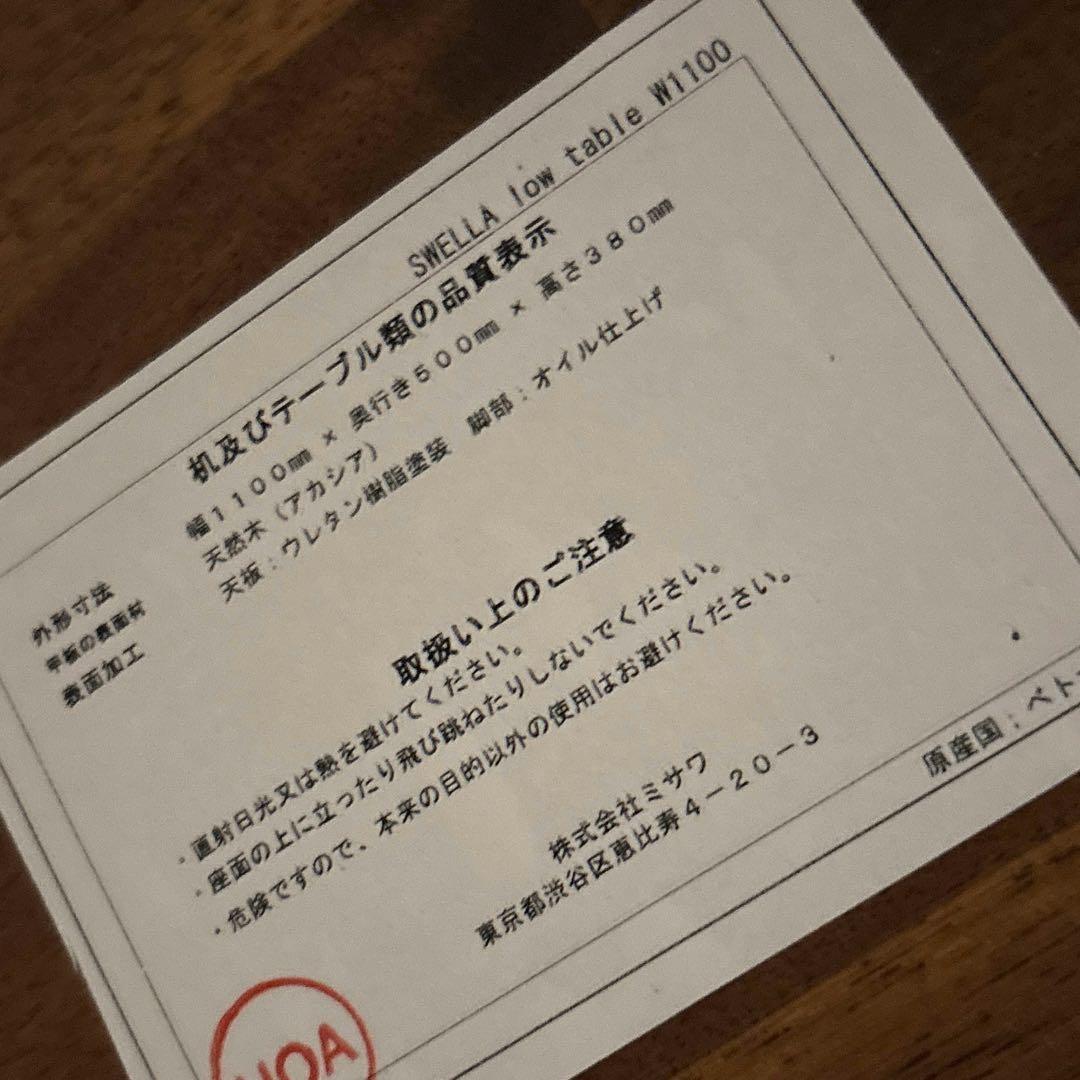 SWELLA low table W1100
机及びテーブル類の品質表示
外形寸法 幅1100㎜ × 奥行き500㎜ × 高さ380㎜
甲板の表面材 天然木（アカシア）
表面加工 天板：ウレタン樹脂塗装 脚部：オイル仕上げ
取扱い上のご注意
・直射日光又は熱を避けてください。
・座面の上に立ったり飛び跳ねたりしないでください。
・危険ですので、本来の目的以外の使用はお避けください。
株式会社ミサワ
東京都渋谷区恵比寿4－20－3
原産国：ベト